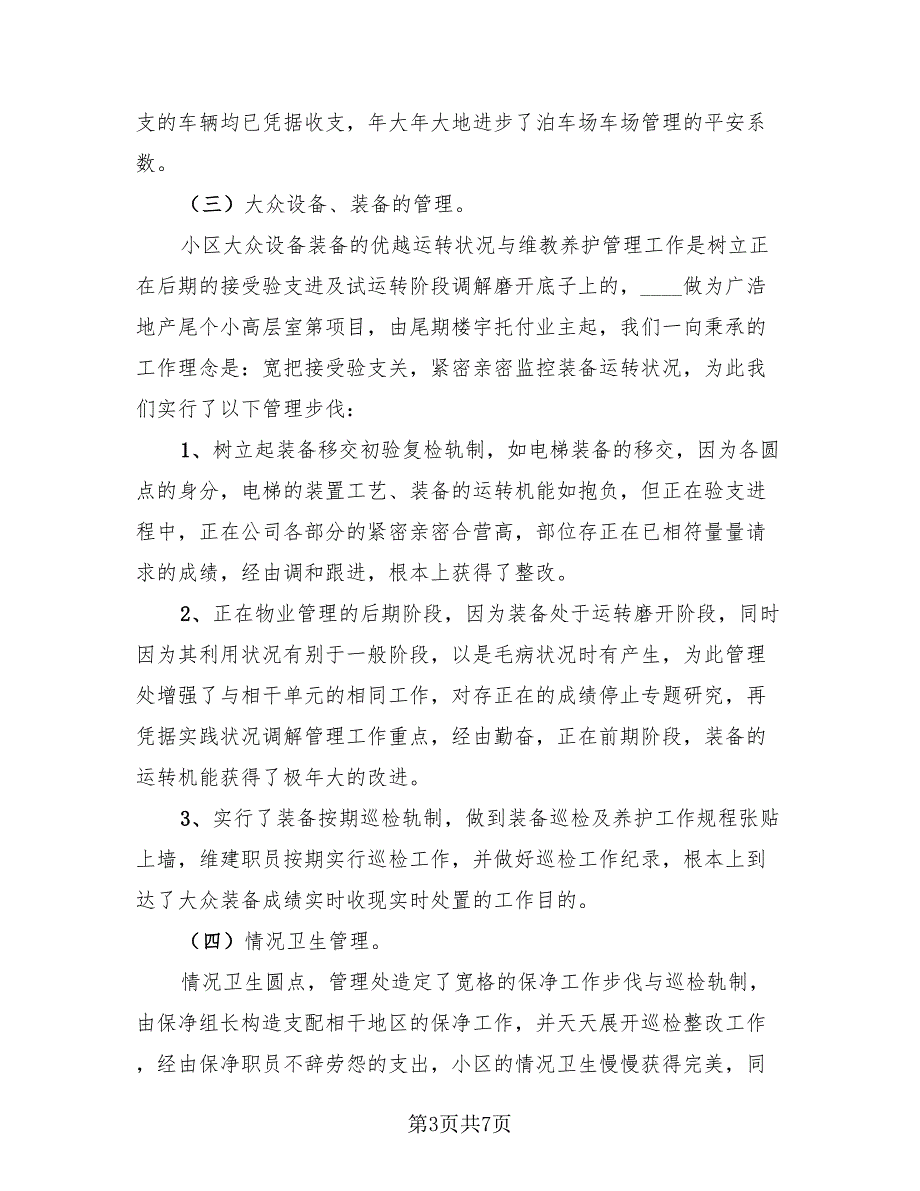 支的车辆均已凭据收支，年大年大地进步了泊车场车场管理的平安系
数。
（三）大众设备、装备的管理。
小区大众设备装备的优越运转状况与维教养护管理工作是树立正
在后期的接受验支进及试运转阶段调解磨开底子上的，____做为广浩
地产尾个小高层室第项目，由尾期楼宇托付业主起，我们一向秉承的
工作理念是：宽把接受验支关，紧密亲密监控装备运转状况，为此我
们实行了以下管理步伐：
1、树立起装备移交初验复检轨制，如电梯装备的移交，因为各圆
点的身分，电梯的装置工艺、装备的运转机能如抱负，但正在验支进
程中，正在公司各部分的紧密亲密合营高，部位存正在已相符量量请
求的成绩，经由调和跟进，根本上获得了整改。
2、正在物业管理的后期阶段，因为装备处于运转磨开阶段，同时
因为其利用状况有别于一般阶段，以是毛病状况时有产生，为此管理
处增强了与相干单元的相同工作，对存正在的成绩停止专题研究，再
凭据实践状况调解管理工作重点，经由勤奋，正在前期阶段，装备的
运转机能获得了极年大的改进。
3、实行了装备按期巡检轨制，做到装备巡检及养护工作规程张贴
上墙，维建职员按期实行巡检工作，并做好巡检工作纪录，根本上到
达了大众装备成绩实时收现实时处置的工作目的。
（四）情况卫生管理。
情况卫生圆点，管理处造定了宽格的保净工作步伐与巡检轨制，
由保净组长构造支配相干地区的保净工作，并天天展开巡检整改工作
，经由保净职员不辞劳怨的支出，小区的情况卫生慢慢获得完美，同
第3页共7页